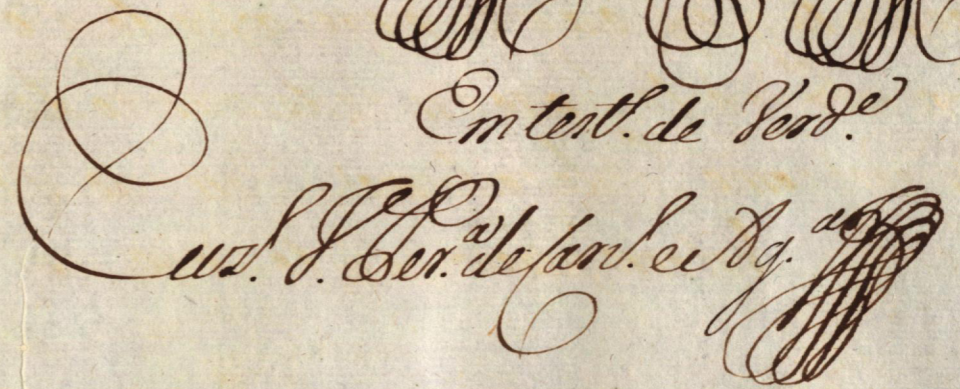 Em test.º de Verd.e
Euz.º J. Per.a de Carv.º e Ag.ar